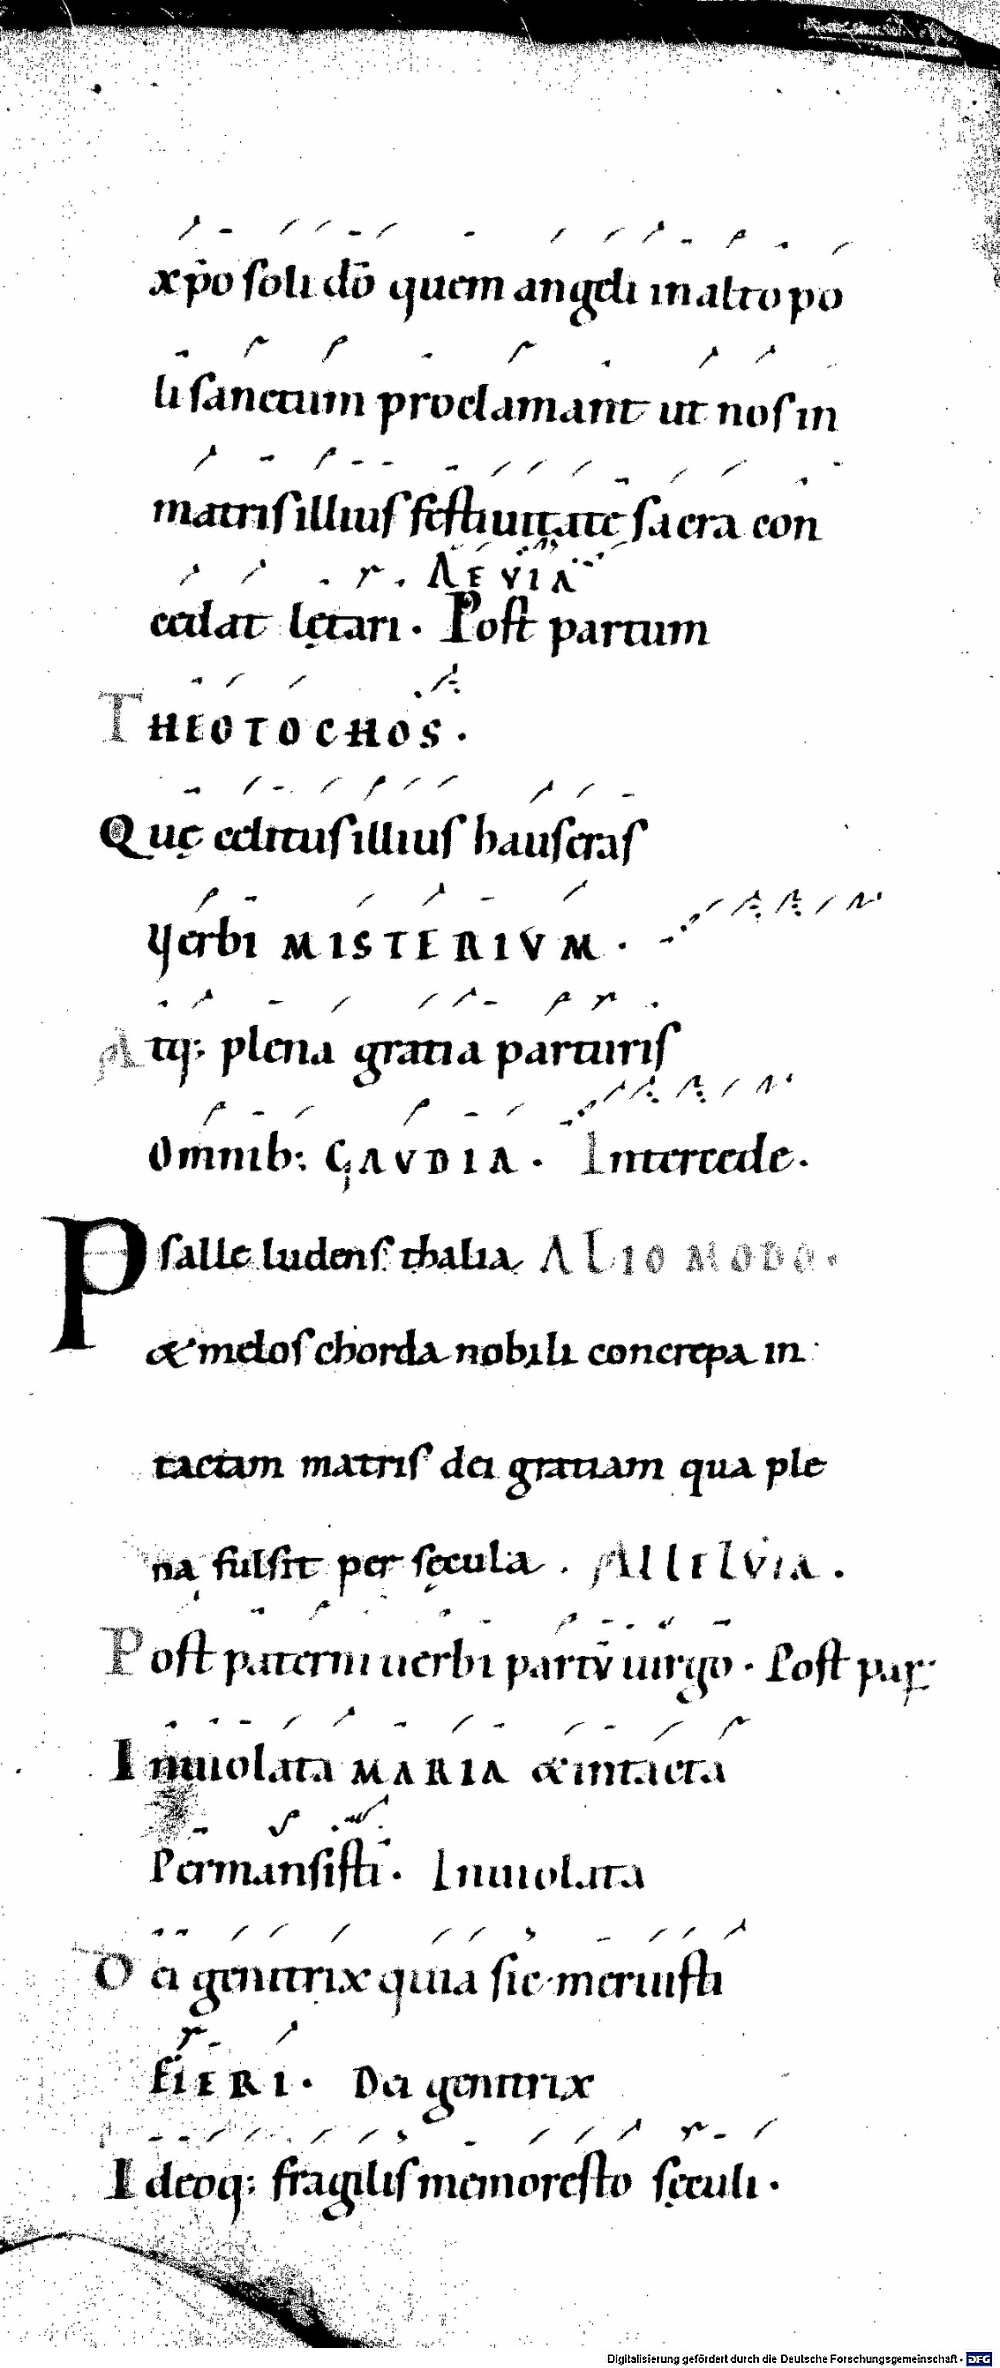 xp̄o soli dō quem angeli in alto po
li sanctum proclamant ut nos in
matris illius festiuitate sacra con
cedat lętari. AEVIA Post partum
THEOTOCHOS.
Quę editus illius hauseras
Verbi MISTERIVM.
Atq; plena gratia parturis
Omnib; GAVDIA. Intercede.
Psalle ludens thalia ALIO MODO.
& melos chorda nobili concrepa in
tactam matris dei gratiam qua ple
na fulsit per sęcula. Allelvia.
Post paterni uerbi partv̄ uirgo. Post par
Inuiolata MARIA & intacta
Permansisti. Inuiolata
Dei genitrix quia sic meruisti
fiERI. Dei genitrix
Ideoq; fragilis memor esto sęculi.
Digitalisierung gefördert durch die Deutsche Forschungsgemeinschaft - DFG